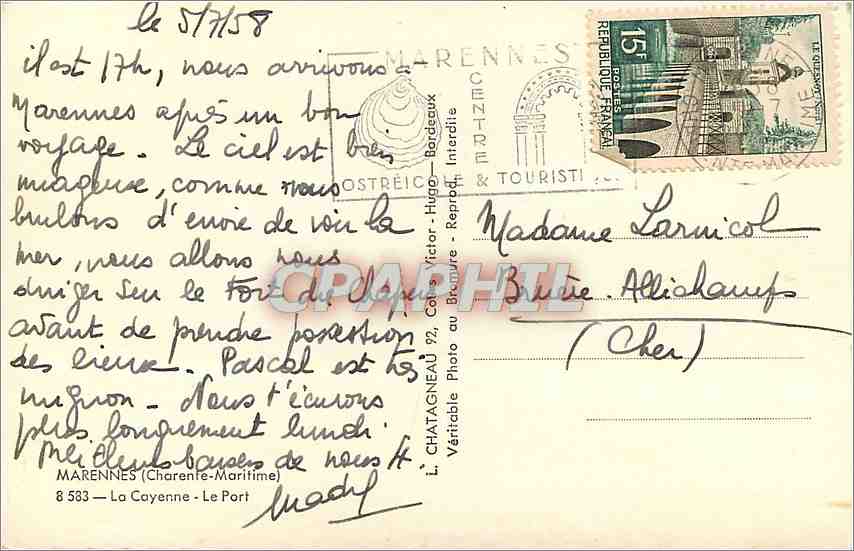 le 5/7/58
il est 17h, nous arrivons à
Marennes après un bon
voyage. Le ciel est bien
nuageux, comme nous
brulons d'envie de voir la
mer, nous allons nous
diriger sur le Fort du Chapus
avant de prendre possession
des lieux. Pascal est très
mignon. Nous t'écrirons
plus longuement lundi.
Meilleurs baisers de nous 4.
Mady
MARENNES (Charente-Maritime)
8 583 — La Cayenne - Le Port
L. CHATAGNEAU 92, Cours Victor-Hugo — Bordeaux
Véritable Photo au Bromure - Reprod. Interdite
MARENNES
CENTRE
OSTRÉICOLE & TOURISTIQUE
15F
POSTES
REPUBLIQUE FRANÇAISE
LE QUESNOY
Madame Larnicol
Bruère-Allichamps
(Cher)
CPARPHIL